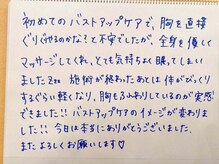 初めてのバストアップケアで、胸を直接
ぐりぐりやるのかな?と不安でしたが、全身を優しく
マッサージしてくれ、とても気持ちよく眠ってしまい
ましたzzz 施術が終わったあとは体がびっくり
するぐらい軽くなり、胸もふんわりしているのが実感
できました!!バストアップケアのイメージが変わりま
した!!今日は本当にありがとうございました、
またよろしくお願いします♡